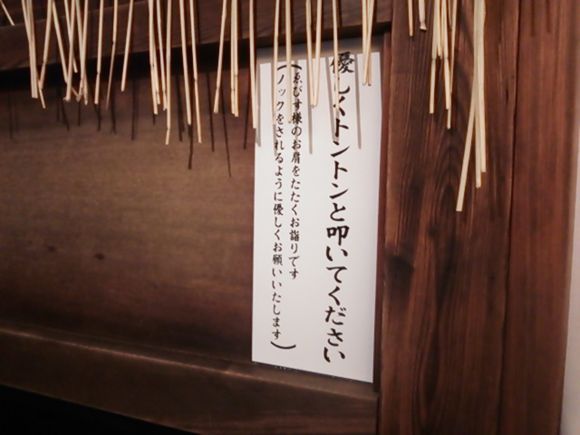 優しくトントンと叩いてください
(ゑびす様のお肩をたたくお詣りです
ノックをされるように優しくお願いいたします)